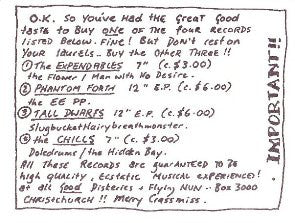 O.K. So you've Had the Great Good
taste to Buy ONE of the four Records
listed Below. Fine! But Don't rest on
Your Laurels.. Buy the Other THREE!!
① The EXPENDABLES 7" (c.$3.00)
the Flower / Man with No Desire.
② PHANTOM FORTH 12" E.P. (c.$6.00)
the EE PP.
③ TALL DWARFS 12" E.P. (c.$6.00)
SlugbucketHairybreathmonster.
④ the CHILLS 7" (c.$3.00)
Doledrums / the Hidden Bay.
All These Records are guaranteed to be
high quality, Ecstatic Musical experience!
at all good Diskeries + Flying Nun -- Box 3000
Christchurch!! Merry Crassmiss.
IMPORTANT!!